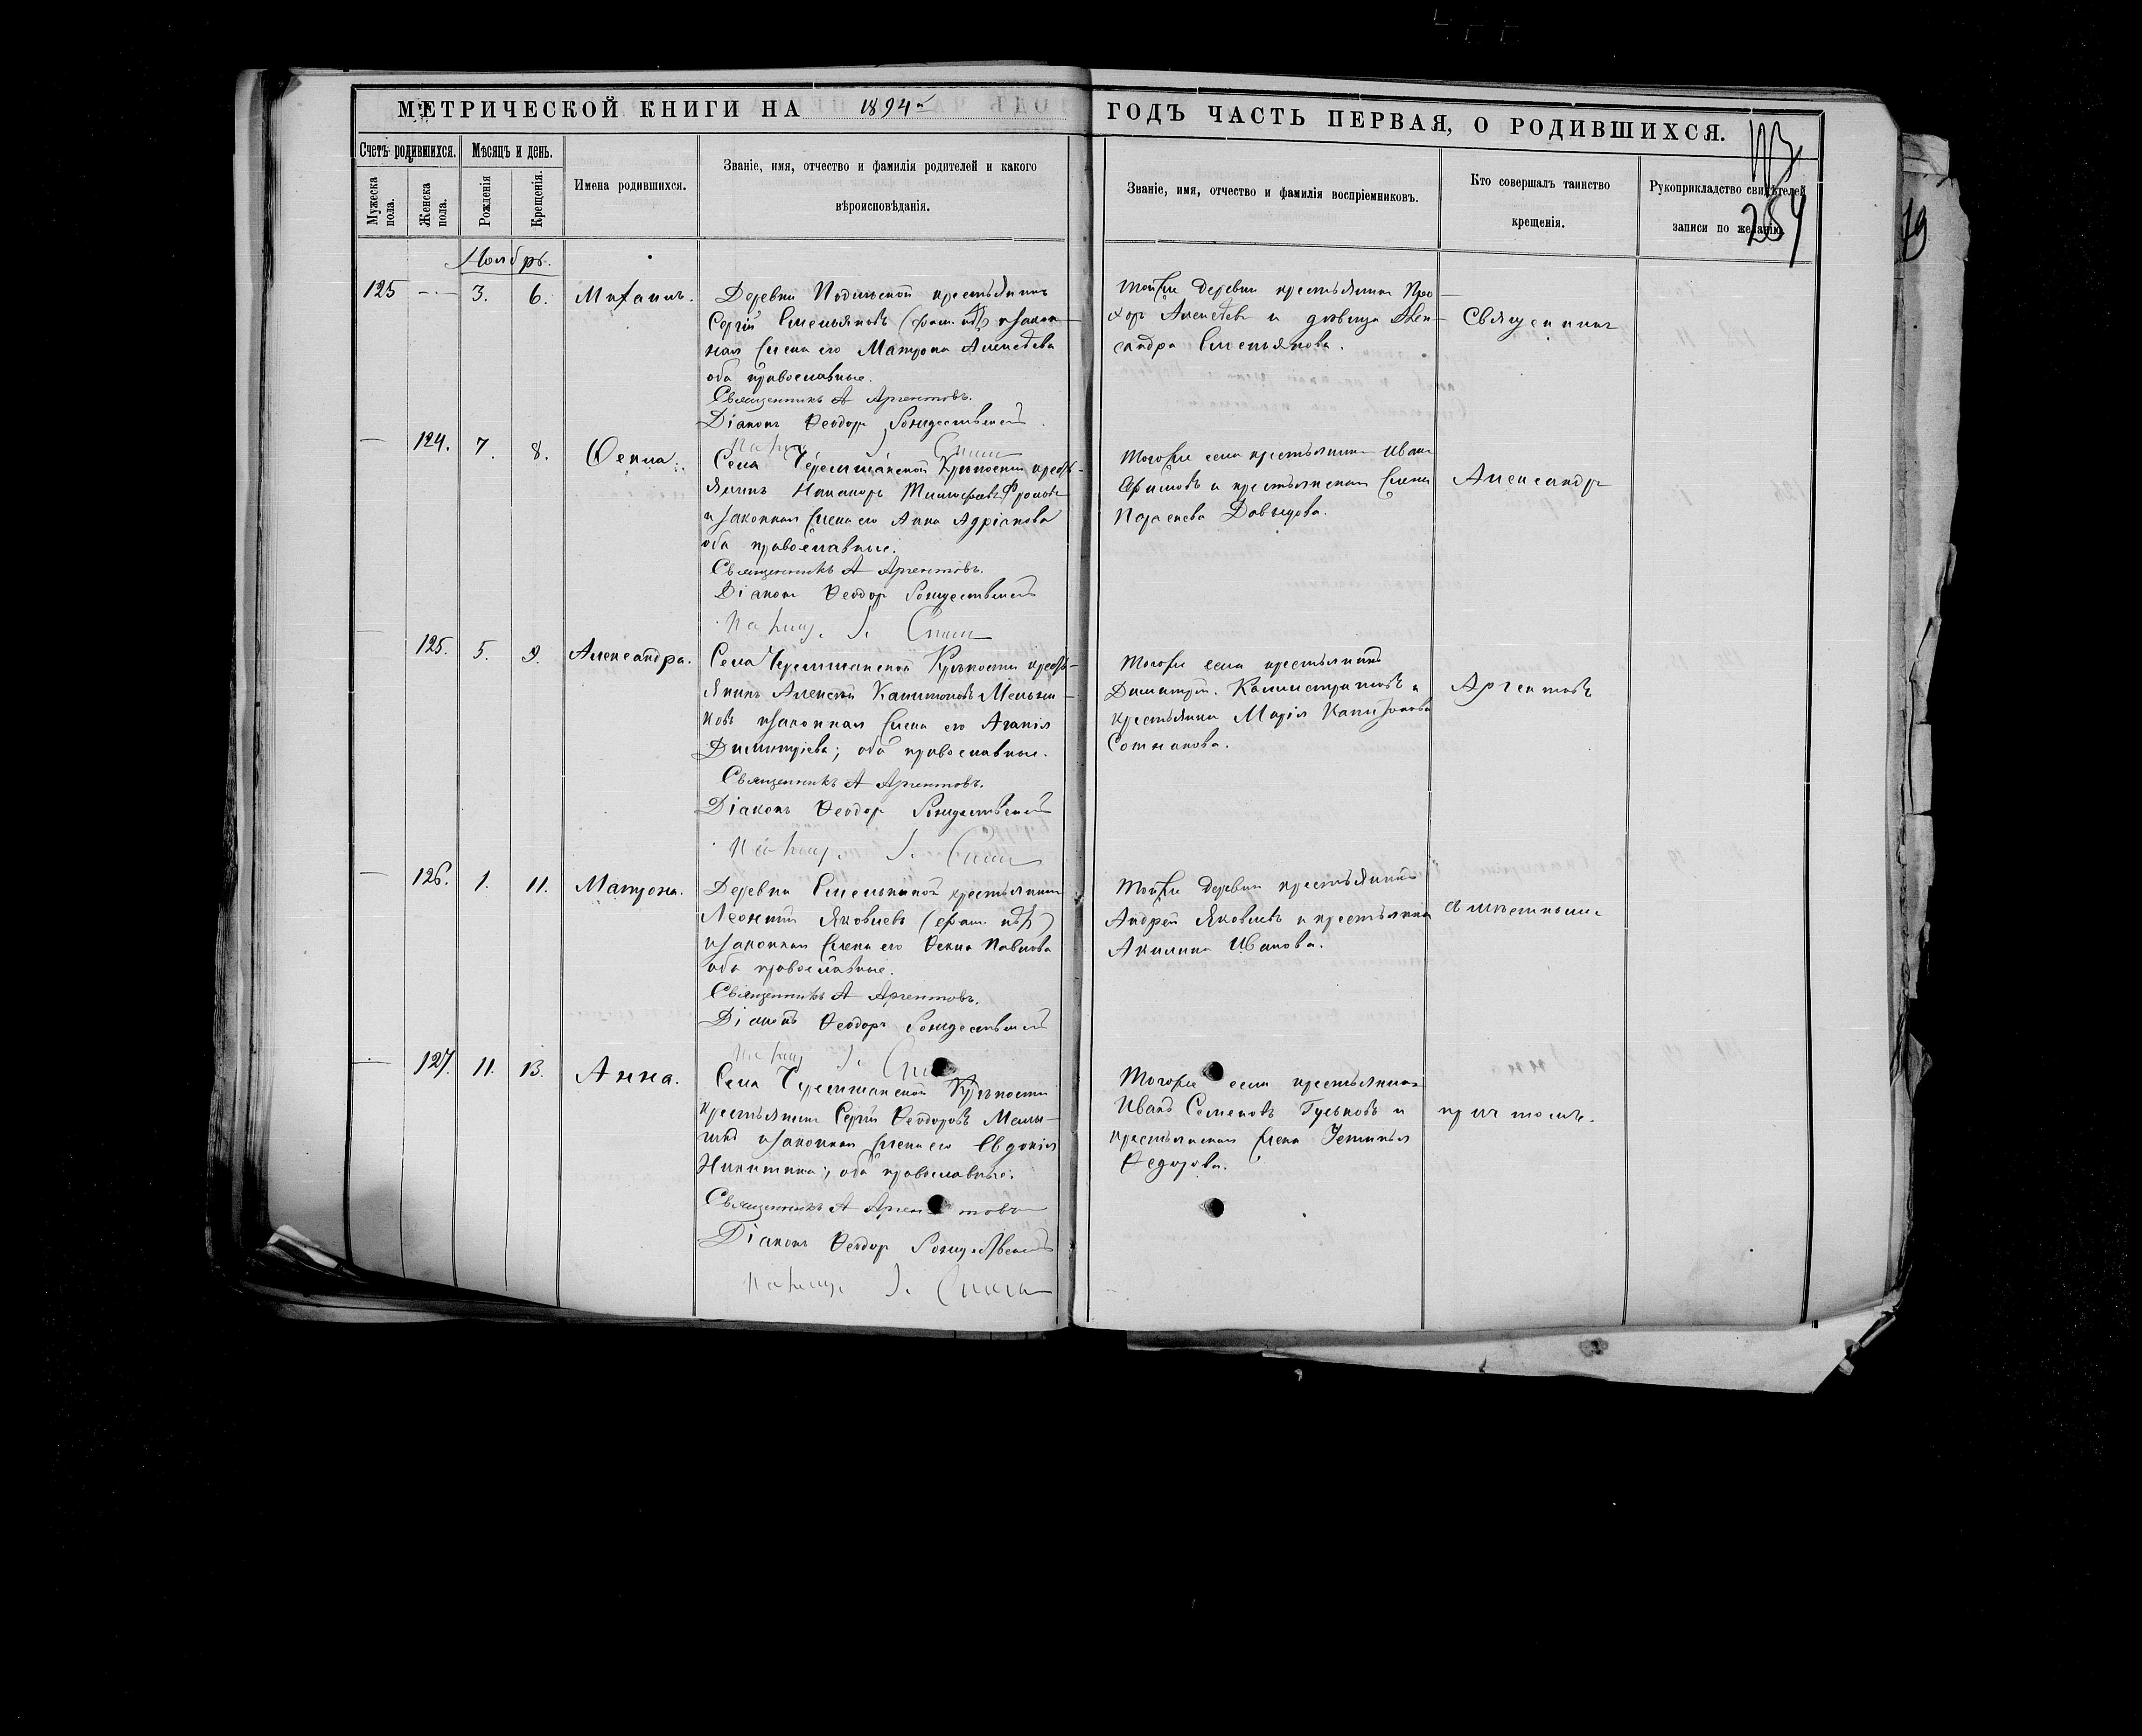 МЕТРИЧЕСКОЙ КНИГИ НА 1894й
ГОДЪ ЧАСТЬ ПЕРВАЯ, О РОДИВШИХСЯ.
254
Счетъ родившихся.
Мѣсяцъ и день.
Мужеска пола.
Женска пола.
Рожденія
Крещенія.
Имена родившихся.
Званіе, имя, отчество и фамилія родителей и какого
вѣроисповѣданія.
Званіе, имя, отчество и фамилія воспріемниковъ.
Кто совершалъ таинство
крещенія.
Рукоприкладство свидѣтелей
записи по желанію.
Ноябрь.
125 — 3. 6. Михаилъ.
Деревни крестьянинъ
Сергій Емельяновъ (фам. нѣт) и закон-
ная жена его Матрона Алексѣева
оба православные.
Священникъ А Аргентовъ.
Діаконъ Ѳеодоръ Рождественскій
Той же деревни крестьянинъ Про-
хоръ Алексѣевъ и дѣвица Алек-
сандра Емельянова.
Священникъ
— 124. 7. 8. Ѳекла.
Села Черемшанской Крѣпости кресть-
янинъ Никаноръ Тимофеевъ Фроловъ
и законная жена его Анна Адріанова
оба православные.
Священникъ А Аргентовъ.
Діаконъ Ѳеодоръ Рождественскій
Того же села крестьянинъ Иванъ
и крестьянская жена
Давыдова.
Александръ
— 125. 5. 9. Александра.
Села Черемшанской Крѣпости кресть-
янинъ Алексѣй Капитоновъ Мельни-
ковъ и законная жена его Агапія
Димитріева; оба православные.
Священникъ А Аргентовъ.
Діаконъ Ѳеодоръ Рождественскій
Того же села крестьянинъ
Димитрій Каллистратовъ и
крестьянка Марія Капитонова
Сотникова.
Аргентовъ
— 126. 1. 11. Матрона.
Деревни Емелькиной крестьянинъ
Леонтій Яковлевъ (фам. нѣт)
и законная жена его Ѳекла Павлова
оба православные.
Священникъ А Аргентовъ.
Діаконъ Ѳеодоръ Рождественскій
Той же деревни крестьянинъ
Андрей Яковлевъ и крестьянка
Акилина Иванова.
съ мѣстнымъ
— 127. 11. 13. Анна.
Села Черемшанской Крѣпости
крестьянинъ Сергій Ѳеодоровъ
и законная жена его Евдокія
Никитина; оба православные.
Священникъ А Аргентовъ
Діаконъ Ѳеодоръ Рождественскій
Того же села крестьянинъ
Иванъ Семеновъ Гуськовъ и
крестьянская жена Устинья
Ѳедорова.
причтомъ.